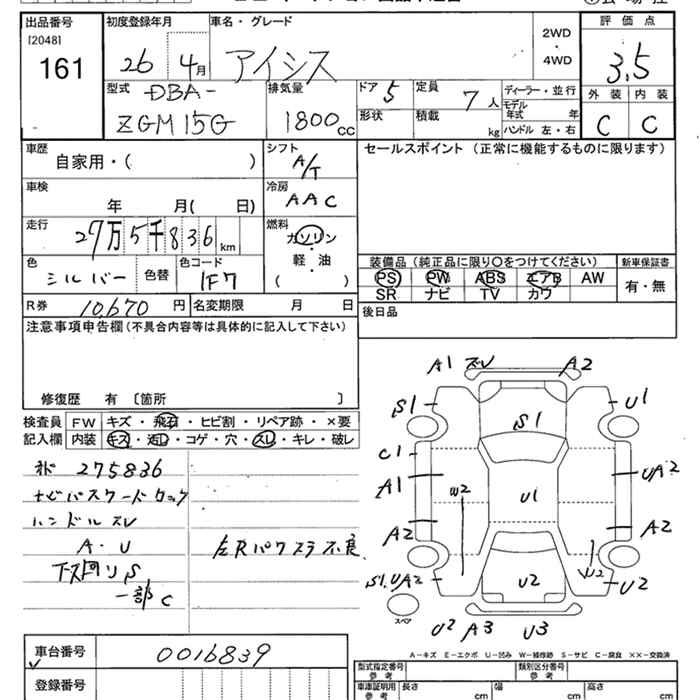 出品番号
[2048]
161
初度登録年月
26 4月
車名・グレード
アイシス
2WD
・
4WD
評価点
3.5
外装 内装
C C
型式
DBA-
ZGM15G
排気量
1800cc
ドア 5
形状
定員 7人
積載 kg
ディーラー・並行
モデル年式 年
ハンドル 左・右
車歴
自家用・( )
シフト
A/T
セールスポイント (正常に機能するものに限ります)
車検
年 月( 日)
冷房
AAC
走行
27万5千836km
燃料
ガソリン
・
軽・油
( )
色
シルバー
色替
色コード
1F7
装備品 (純正品に限り〇をつけてください)
PS PW ABS エアB AW
SR ナビ TV カワ
新車保証書
有・無
R券 10,670円
名変期限 月 日
後日品
注意事項申告欄(不具合内容等は具体的に記入して下さい)
修復歴 有 〔箇所 〕
検査員
記入欄
FW キズ・飛石・ヒビ割・リペア跡・×要
内装 キズ・汚レ・コゲ・穴・スレ・キレ・破レ
275836
ナビパスワードロック
ハンドルスレ
A・U
下回りS
一部C
左Rパワスラ不良
A1 スレ A2
S1 S1 U1
C1
A1 W2 U1 UA2
A2 A2
S1.UA2 U2 W2 U2
スペア
U2 A3 U3
A-キズ E-エクボ U-凹み W-補修跡 S-サビ C-腐食 XX-交換済
車台番号 0016839
登録番号
型式指定番号
参考
類別区分番号
参考
車庫証明用
参考
長さ cm
幅 cm
高さ cm